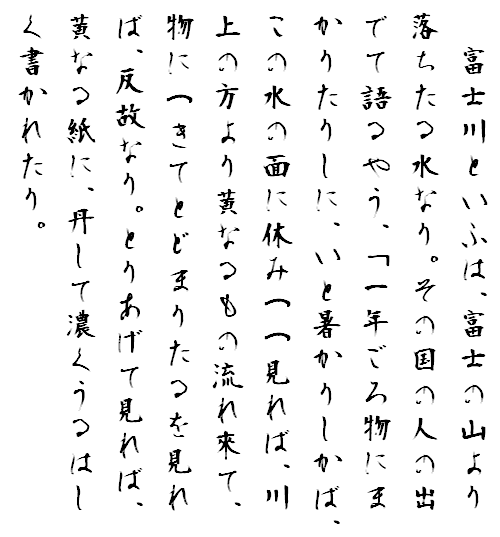 富士川といふは、富士の山より
落ちたる水なり。その国の人の出
でて語るやう、「一年ごろ物にま
かりたりしに、いと暑かりしかば、
この水の面に休みつつ見れば、川
上の方より黄なるもの流れ来て、
物につきてとどまりたるを見れ
ば、反故なり。とりあげて見れば、
黄なる紙に、丹して濃くうるはし
く書かれたり。